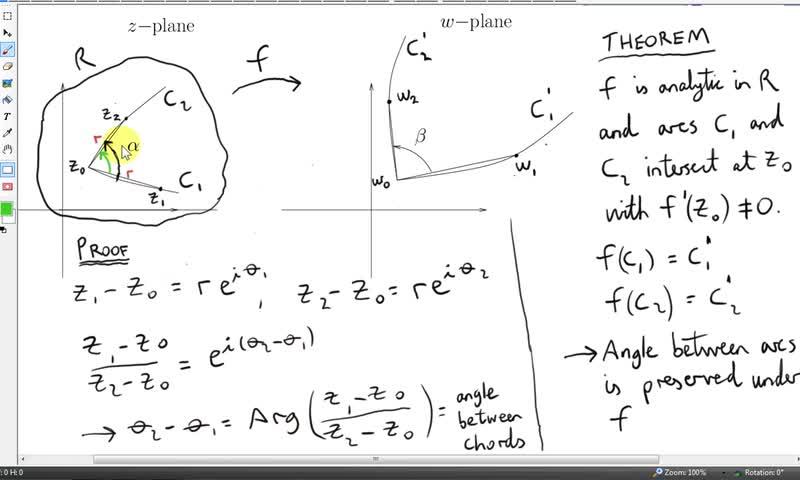 z-plane
R
f
C₂
z₂
r
α
z₀
r
C₁
z₁
w-plane
C₂'
w₂
C₁'
β
w₁
w₀
THEOREM
f is analytic in R
and arcs C₁ and
C₂ intersect at z₀
with f'(z₀) ≠ 0.
f(C₁) = C₁'
f(C₂) = C₂'
→ Angle between arcs
is preserved under
f
PROOF
z₁ - z₀ = re^{iθ₁}, z₂ - z₀ = re^{iθ₂}
(z₁ - z₀)/(z₂ - z₀) = e^{i(θ₂-θ₁)}
→ θ₂ - θ₁ = Arg((z₁ - z₀)/(z₂ - z₀)) = angle
between
chords
: 0 H: 0
Zoom: 100%
Rotation: 0°